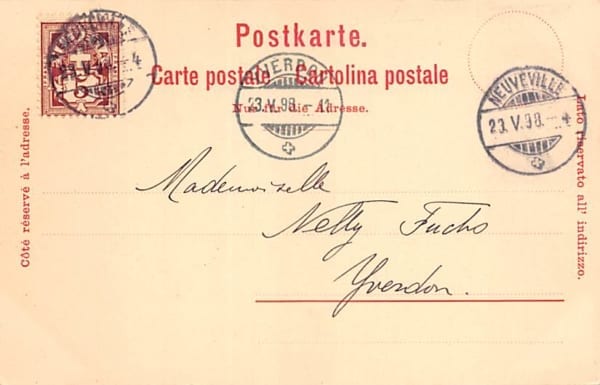 Postkarte.
Carte postale Cartolina postale
Nur für die Adresse.
Côté réservé à l'adresse.
Lato riservato all' indirizzo.
23.V.98.
NEUVEVILLE
23.V.98.–4
Mademoiselle
Nelly Fuchs
Yverdon.